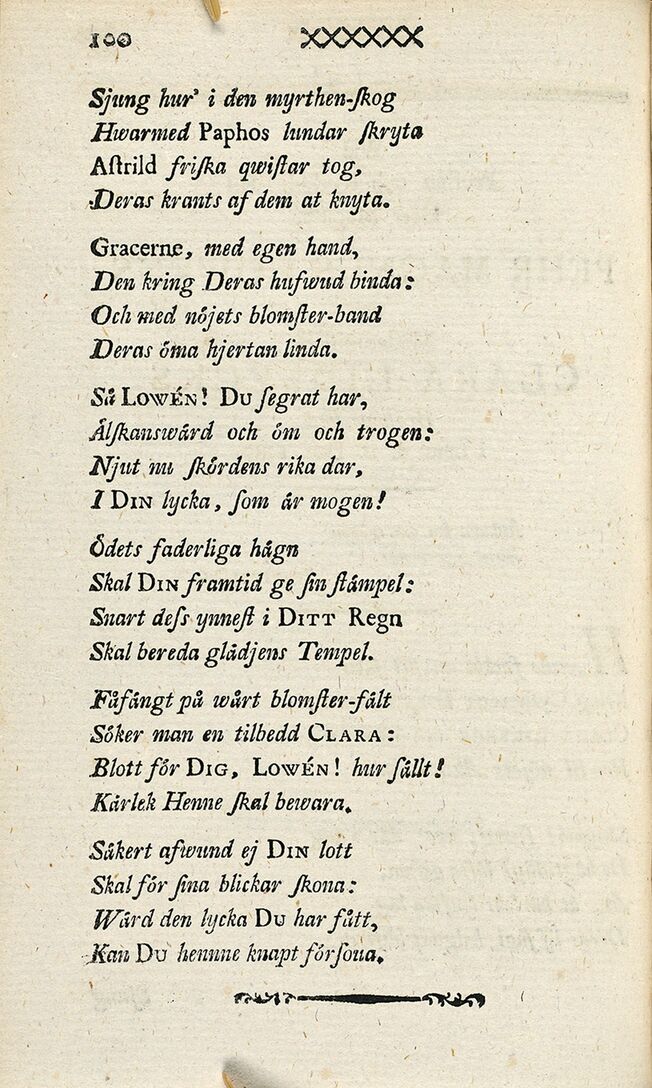 100 XXXXXX
Sjung hur' i den myrthen-ſkog
Hwarmed Paphos lundar ſkryta
Aſtrild friſka qwiſtar tog,
Deras krants af dem at knyta.
Gracerne, med egen hand,
Den kring Deras hufwud binda:
Och med nöjets blomſter-band
Deras öma hjertan linda.
Så LOWÉN! DU ſegrat har,
Älſkanswärd och öm och trogen:
Njut nu ſkördens rika dar,
I DIN lycka, ſom är mogen!
Ödets faderliga hägn
Skal DIN framtid ge ſin ſtämpel:
Snart deſs ynneſt i DITT Regn
Skal bereda glädjens Tempel.
Fåfängt på wårt blomſter-fält
Söker man en tilbedd CLARA:
Blott för DIG, LOWÉN! hur ſällt!
Kärlek Henne ſkal bewara.
Säkert afwund ej DIN lott
Skal för ſina blickar ſkona:
Wärd den lycka DU har fått,
Kan DU hennne knapt förſona.